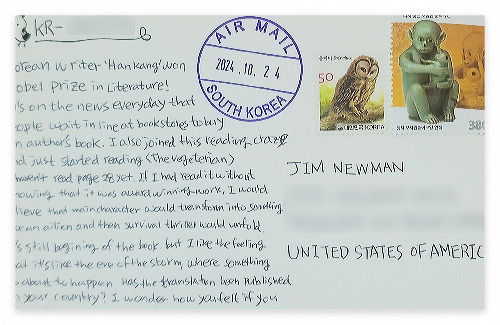 KR-
orean writer 'Han kang' won
obel Prize in Literature!
's on the news everyday that
eople wait in line at bookstores to buy
n author's book. I also joined this reading craze
nd just started reading (The vegeterian)
haven't read page 28 yet. If I had read it without
nowing that it was award winning-work, I would
lieve that main character would transform into something
ke an ailien and then survival thriller would unfold.
's still begining of the book but I like the feeling
at it's like the eve of the storm where something
about to happen. Has the translation been published
n your country? I wonder how you felt if you
AIR MAIL
2024.10.24
SOUTH KOREA
50
대한민국 KOREA
380
JIM NEWMAN
UNITED STATES OF AMERIC